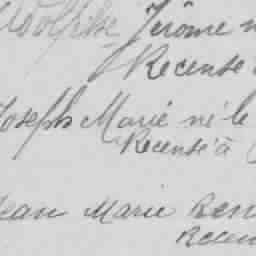 Adolphe Jérôme n
Recensé à
Joseph Marie né le
Recensé à
Jean Marie Ren
Recen